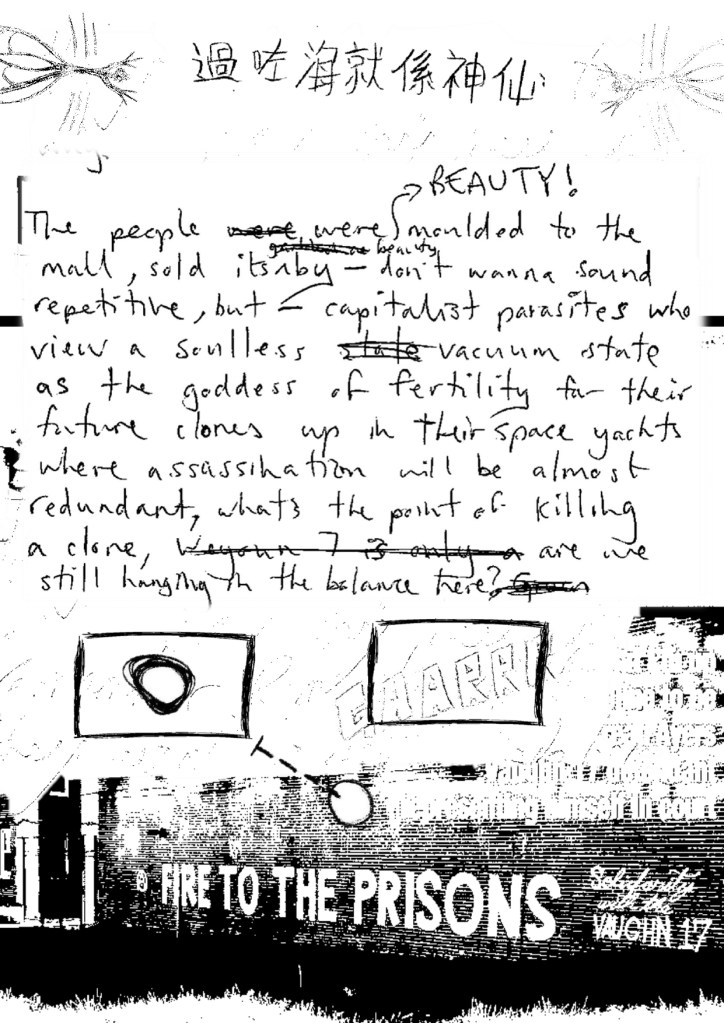 過咗海就係神仙
BEAUTY!
The people were were moulded to the
beauty
mall, sold its by – don't wanna sound
repetitive, but – capitalist parasites who
view a soulless state vacuum state
as the goddess of fertility for their
future clones up in their space yachts
where assassination will be almost
redundant, what's the point of killing
a clone, Weyoun 7 is only a are we
still hanging in the balance here?
GHARRI
himself in court
FIRE TO THE PRISONS
Solidarity
with the
VAUGHN 17